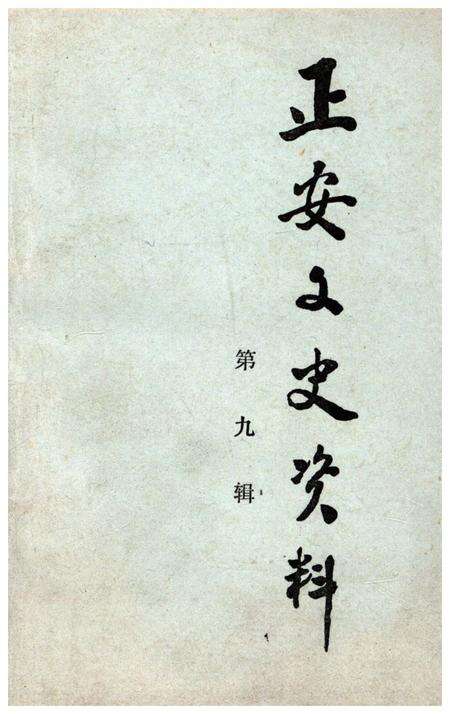 正安文史资料
第九辑